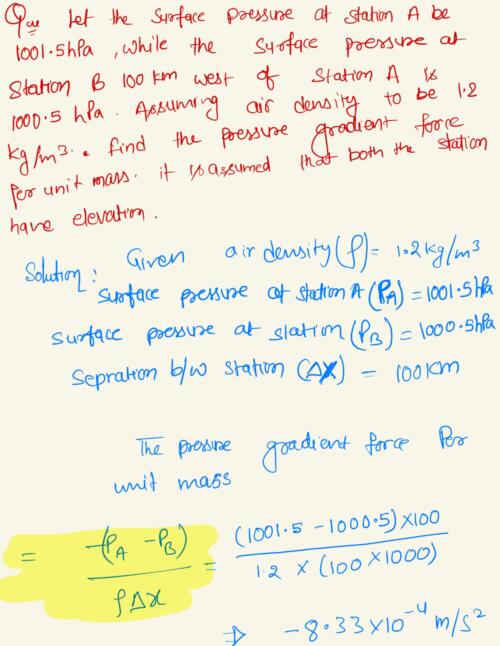 Que Let the Surface Pressure at Station A be
1001.5hPa, while the Surface pressure at
Station B 100 km west of Station A is
1000.5 hPa. Assuming air density to be 1.2
kg/m³. find the pressure gradient force
Per unit mass. it is assumed that both the station
have elevation.
Solution: Given air density (ρ) = 1.2 kg/m³
Surface pressure at station A (PA) = 1001.5hPa
Surface pressure at station (PB) = 1000.5hPa
Sepration b/w station (ΔX) = 100 KM
The pressure gradient force Per
unit mass
= -(PA - PB) / ρΔx = (1001.5 - 1000.5) × 100 / 1.2 × (100 × 1000)
⇒ -8.33 × 10⁻⁴ m/s²